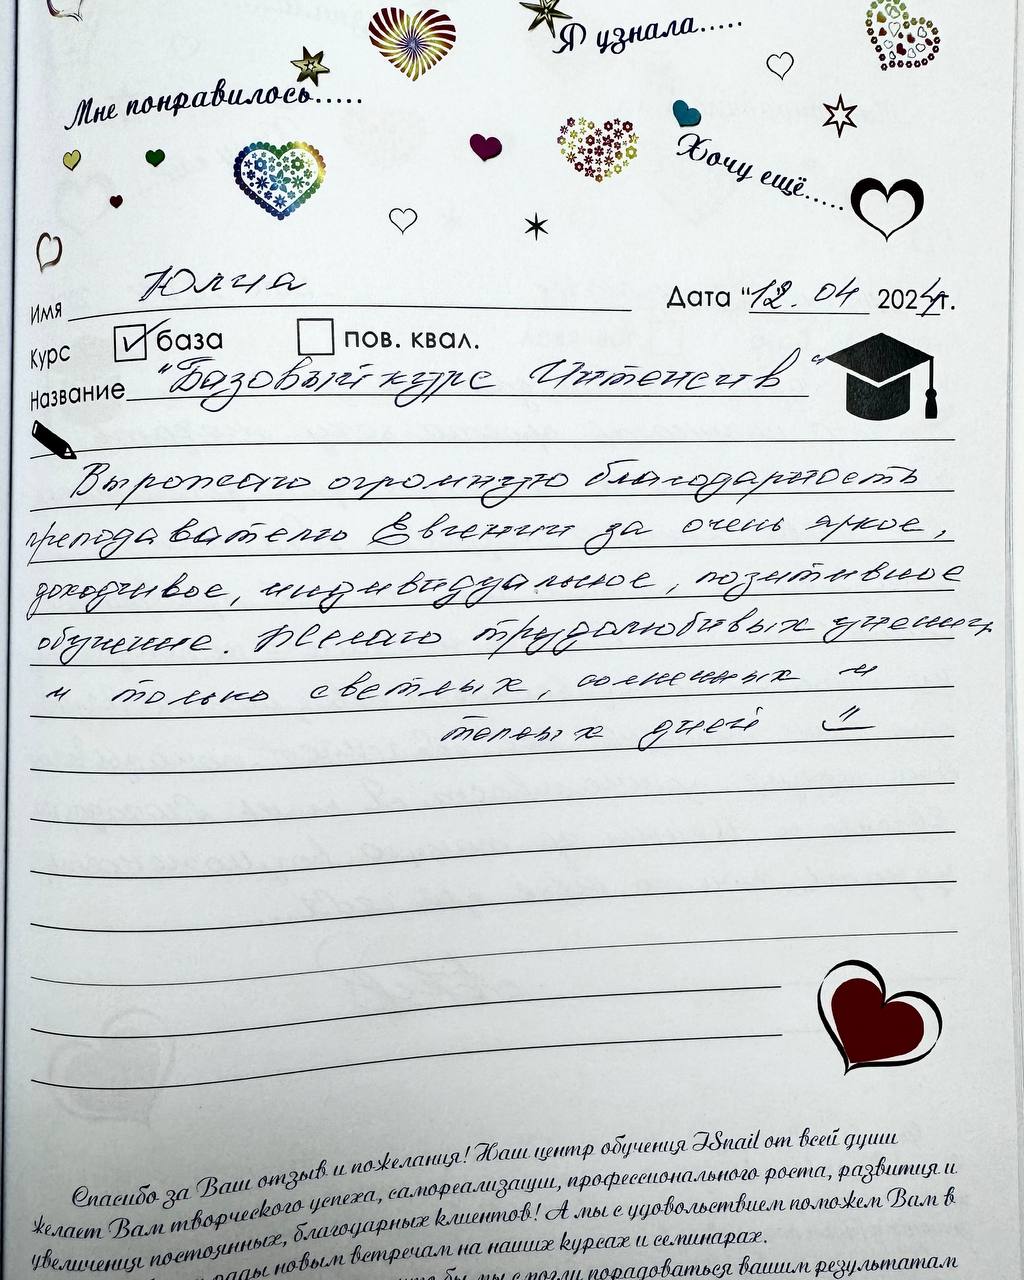 Я узнала.....
Мне понравилось.....
Хочу ещё.....
Имя Юлия Дата "12. 04 2024г.
Курс ✓ база пов. квал.
Название "Базовый курс Интенсив"
Выражаю огромную благодарность
преподавателю Евгении за очень яркое,
доходчивое, индивидуальное, позитивное
обучение. Желаю трудолюбивых учениц
и только светлых, солнечных и
теплых дней
Спасибо за Ваш отзыв и пожелания! Наш центр обучения ISnail от всей души
желает Вам творческого успеха, самореализации, профессионального роста, развития и
увеличения постоянных, благодарных клиентов! А мы с удовольствием поможем Вам в
рады новым встречам на наших курсах и семинарах.
бы мы смогли порадоваться вашим результатам